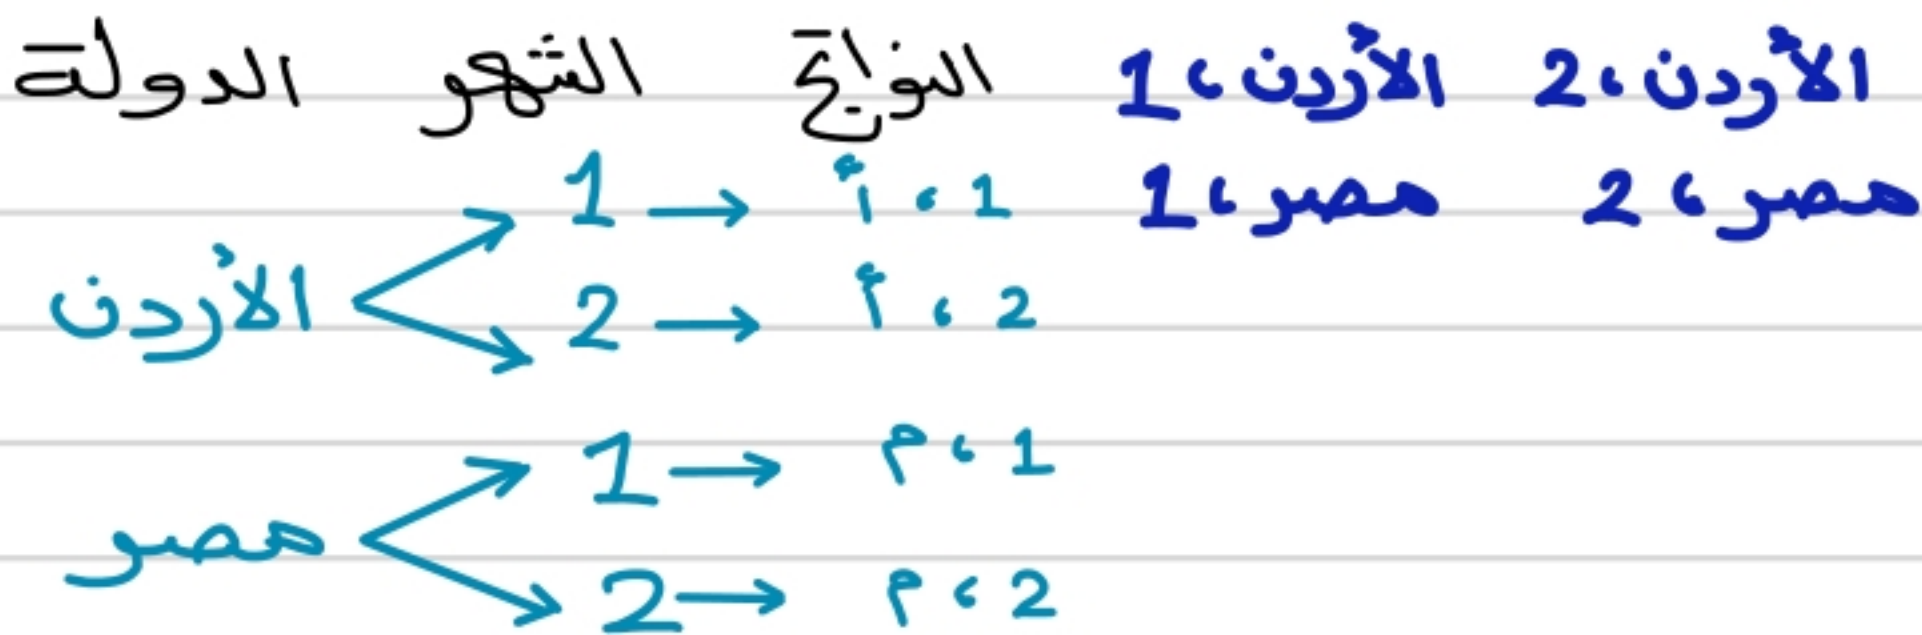 الدولة الشهر النواتج الأردن، 1 الأردن، 2
1 → أ ، 1 مصر، 1 مصر، 2
الأردن
2 → أ ، 2
1 → م ، 1
مصر
2 → م ، 2